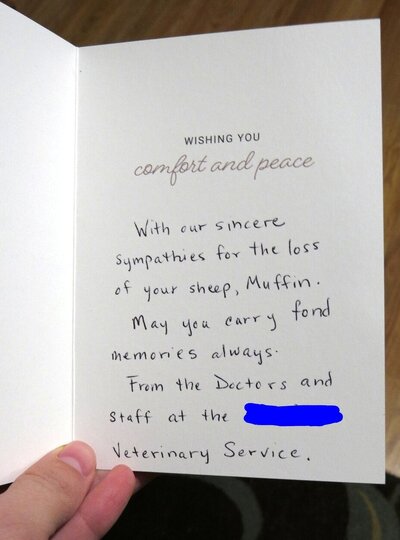 WISHING YOU
comfort and peace
With our sincere
sympathies for the loss
of your sheep, Muffin.
May you carry fond
memories always.
From the Doctors and
staff at the
Veterinary Service.